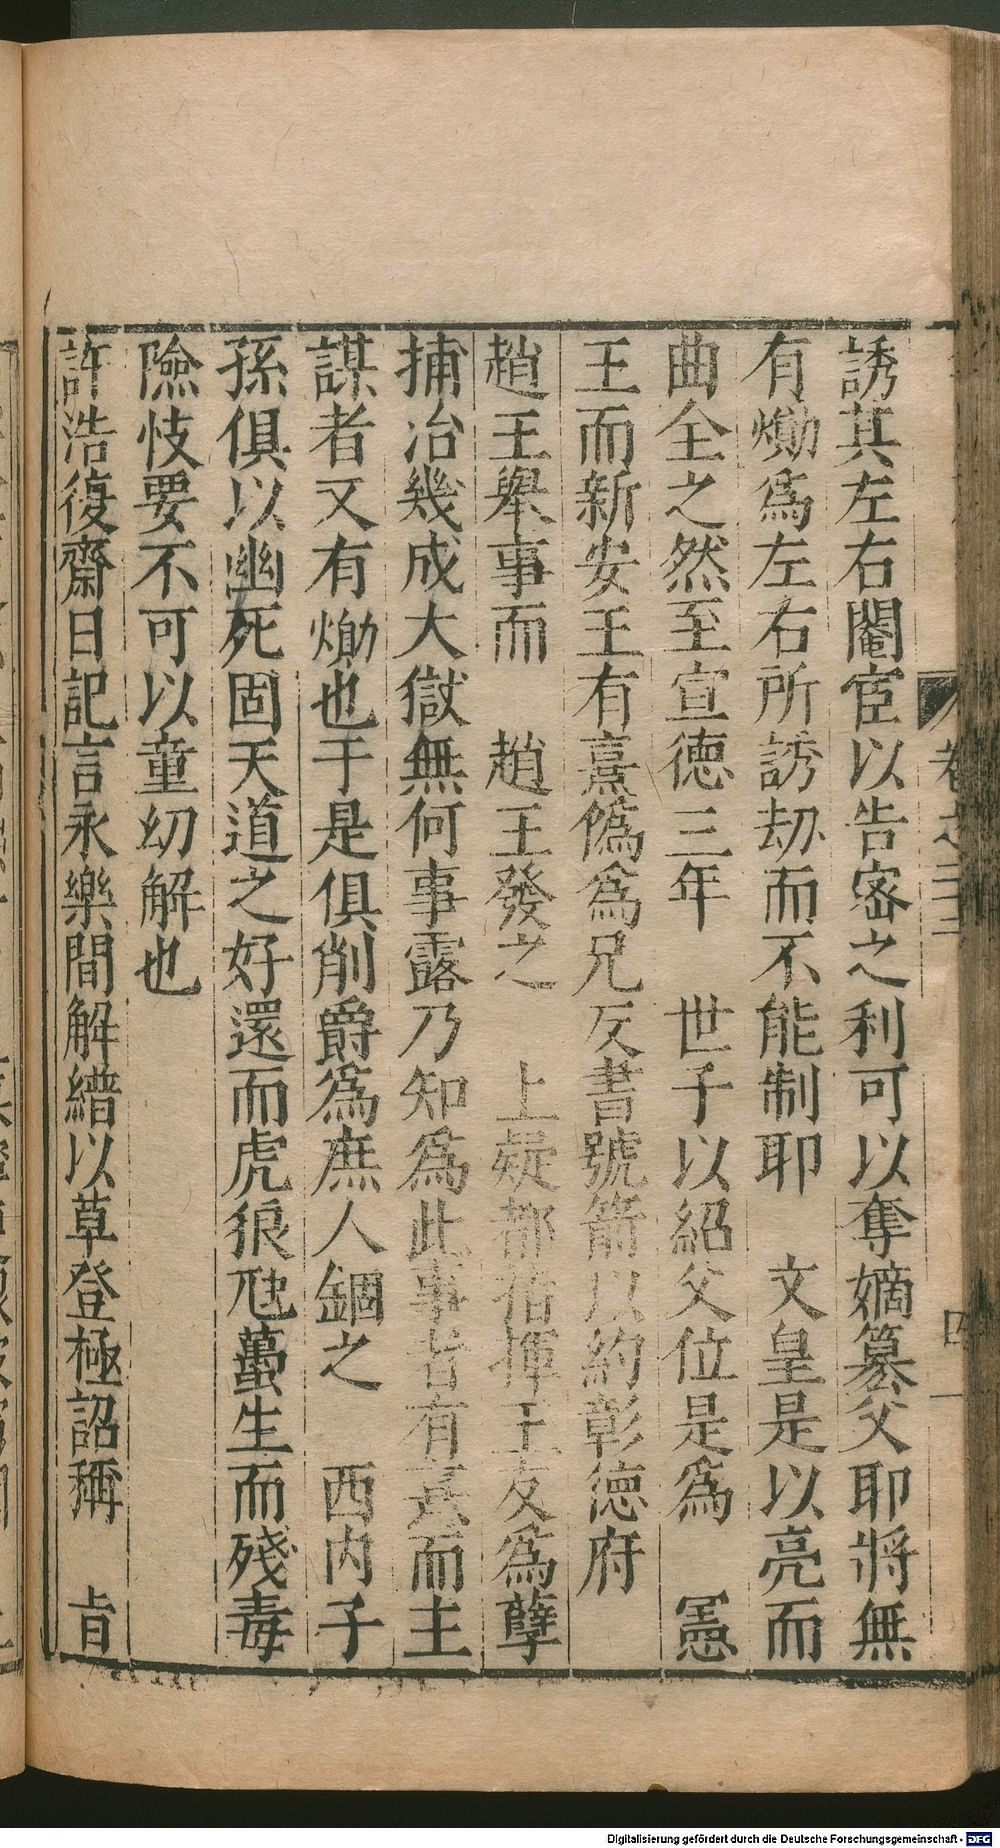 誘其左右閹宦以告密之利可以奪嫡篡父耶將無
有爋爲左右所誘劫而不能制耶　文皇是以亮而
曲全之然至宣德三年　世子以紹父位是爲　憲
王而新安王有熹僞爲兄友書號箭以約彰德府
趙王舉事而　趙王發之　上疑都指揮王友爲孽
捕冶幾成大獄無何事露乃知爲此事者有熹而主
謀者又有爋也于是俱削爵爲庶人錮之　西内子
孫俱以幽死固天道之好還而虎狼虺蠆生而殘毒
險忮要不可以童幼解也
許浩復齋日記言永樂間解縉以草登極詔稱　旨
卷之三
四
Digitalisierung gefördert durch die Deutsche Forschungsgemeinschaft - DFG